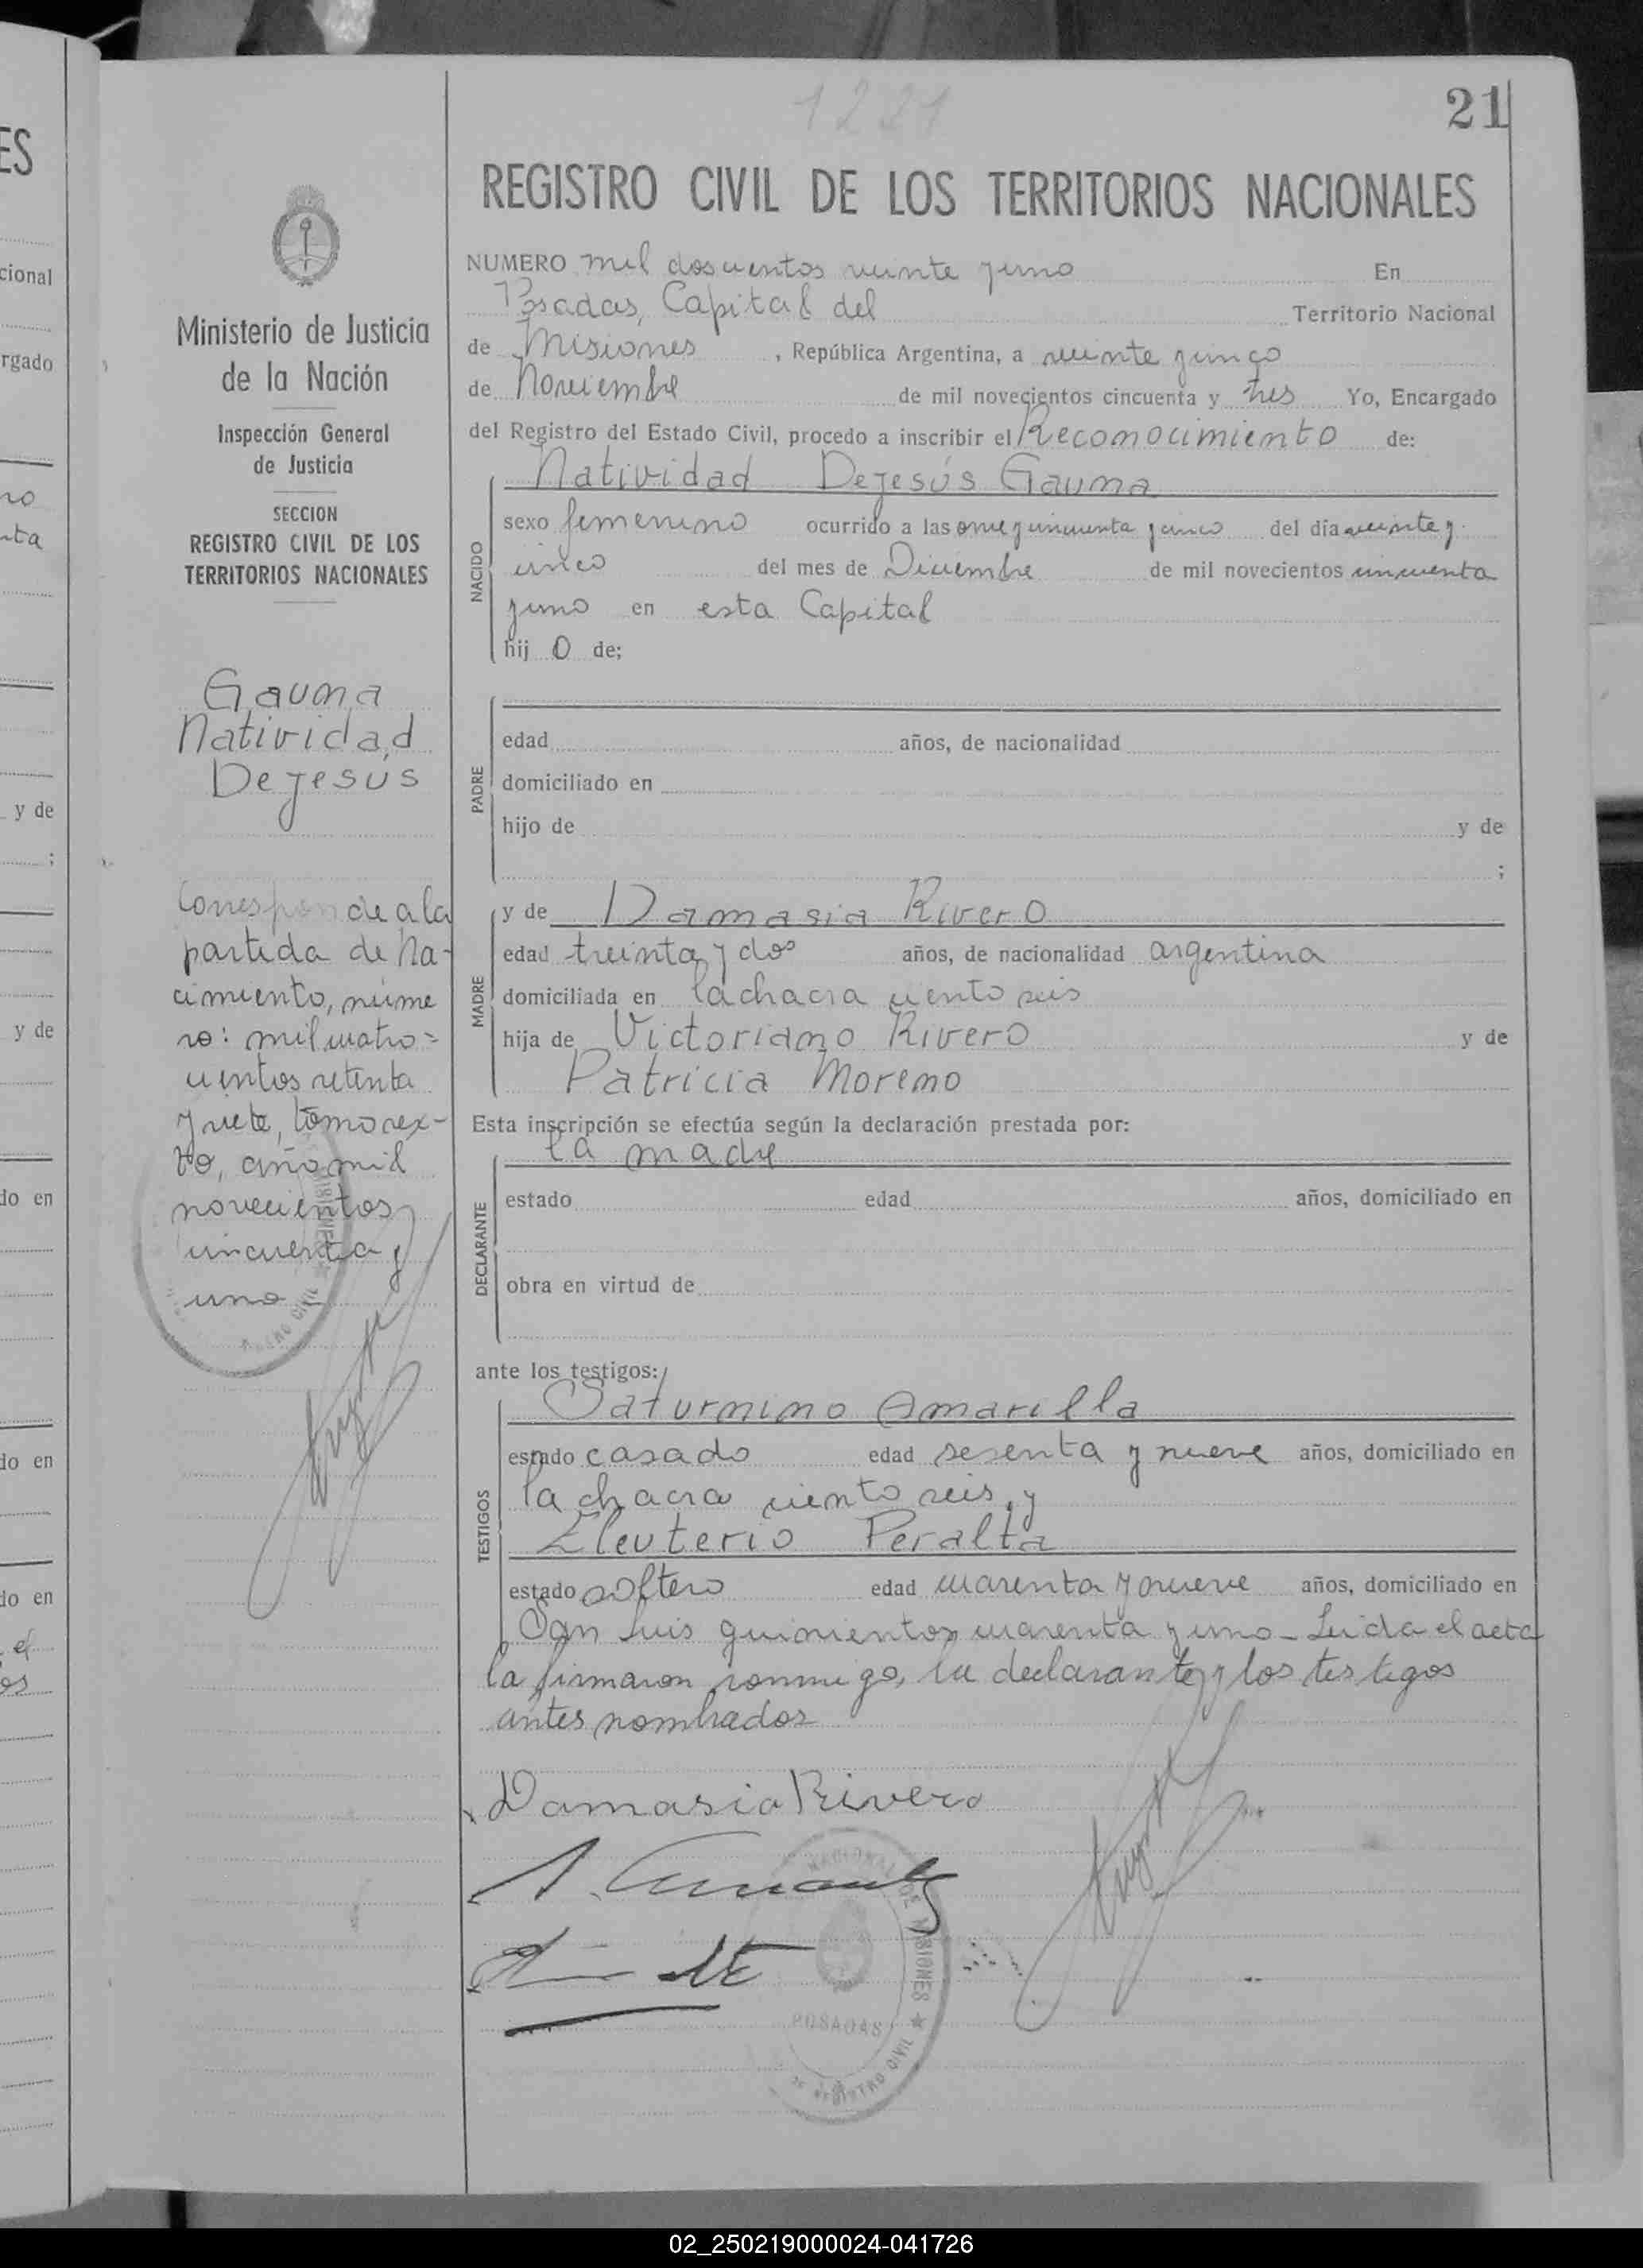 1221
21
REGISTRO CIVIL DE LOS TERRITORIOS NACIONALES
NUMERO mil doscientos veinte y uno En
Posadas, Capital del Territorio Nacional
de Misiones, República Argentina, a veinte y cinco
de Noviembre de mil novecientos cincuenta y tres Yo, Encargado
del Registro del Estado Civil, procedo a inscribir el Reconocimiento de:
NACIDO
Natividad Dejesús Gauna
sexo femenino ocurrido a las once y cincuenta y cinco del día veinte y
cinco del mes de Diciembre de mil novecientos cincuenta
y uno en esta Capital
hij O de;
PADRE
edad años, de nacionalidad
domiciliado en
hijo de y de
;
MADRE
y de Damasia Rivero
edad treinta y dos años, de nacionalidad argentina
domiciliada en la chacra ciento seis
hija de Victoriano Rivero y de
Patricia Moreno
Esta inscripción se efectúa según la declaración prestada por:
DECLARANTE
la madre
estado edad años, domiciliado en
obra en virtud de
ante los testigos:
TESTIGOS
Saturnino Amarilla
estado casado edad sesenta y nueve años, domiciliado en
la chacra ciento seis, y
Eleuterio Peralta
estado soltero edad cuarenta y nueve años, domiciliado en
San Luis quinientos cuarenta y uno - Leida el acta
la firmaron conmigo, la declarante y los testigos
antes nombrados
Damasia Rivero
NACIONAL DE MISIONES
POSADAS
REGISTRO CIVIL
Ministerio de Justicia
de la Nación
Inspección General
de Justicia
SECCION
REGISTRO CIVIL DE LOS
TERRITORIOS NACIONALES
Gauna
Natividad
Dejesús
Corresponde a la
partida de Na-
cimiento, núme
ro: mil cuatro=
cientos setenta
y siete, tomo sex-
to, año mil
novecientos
cincuenta y
uno
ES
cional
rgado
y de
;
y de
do en
do en
do en
02_250219000024-041726